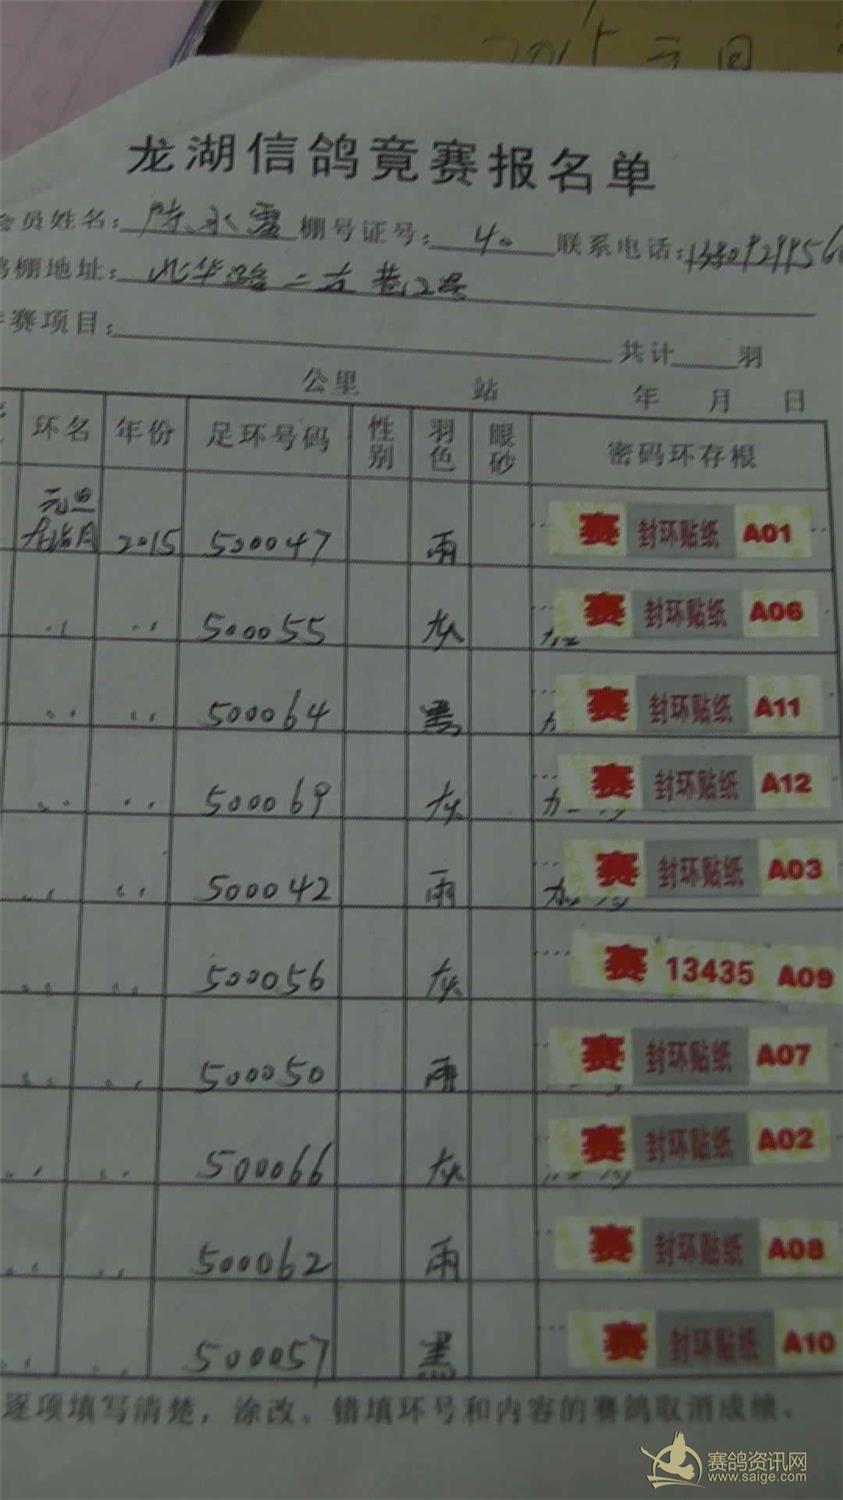 2015 元旦
龙湖信鸽竟赛报名单
会员姓名: 陈永 棚号证号: 40 联系电话:
棚地址: 华路二 巷12号
赛项目: 共计 羽
公里 站 年 月 日
环名 年份 足环号码 性别 羽色 眼砂 密码环存根
元旦 2015 500047 雨 赛 封环贴纸 A01
〃 〃 500055 灰 赛 封环贴纸 A06
〃 〃 500064 黑 赛 封环贴纸 A11
〃 〃 500069 灰 赛 封环贴纸 A12
〃 〃 500042 雨 赛 封环贴纸 A03
〃 〃 500056 灰 赛 13435 A09
〃 〃 500050 雨 赛 封环贴纸 A07
〃 〃 500066 灰 赛 封环贴纸 A02
〃 〃 500062 雨 赛 封环贴纸 A08
〃 〃 500057 黑 赛 封环贴纸 A10
逐项填写清楚，涂改、错填环号和内容的赛鸽取消成绩。
赛鸽资讯网
www.saige.com